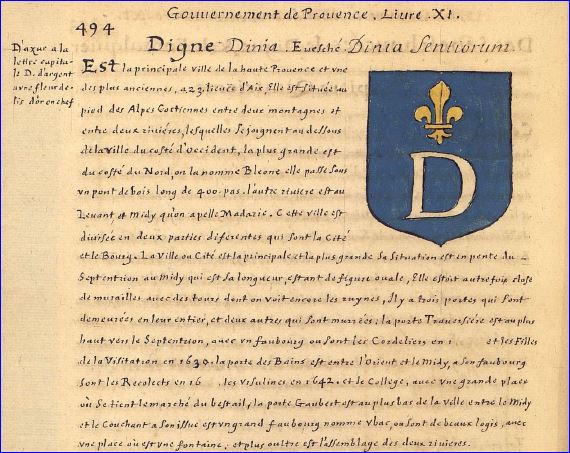 Gouvernement de Prouence. Liure. XI.
494
Digne Dinia Euesché Dinia Sentiorum
D'azur a la
lettre capita-
le D. d'argent
a vne fleur de-
lis d'or en chef
Est la principale ville de la haute Prouence et vne
des plus anciennes, a 23. lieües d'Aix, Elle est située au
pied des Alpes Coctiennes entre deux montagnes et
entre deux riuières, lesquelles se joignent au dessous
de la ville du costé d'Occident, la plus grande est
du costé du Nord, on la nomme Bleone elle passe sous
vn pont de bois long de 400. pas. l'autre riuiere est au
Leuant et Midy qu'on apelle Madaric. Cette ville est
diuisée en deux parties diferentes qui sont la Cité
et le Bourg. La Ville ou Cité est la principale et la plus grande sa situation est en pente du
Septentrion au Midy qui est sa longueur, estant de figure ouale, Elle estoit autrefois close
de murailles auec des tours dont on voit encore les ruynes, Il y a trois portes qui sont
demeurées en leur entier, et deux autres qui sont murées. la porte Trauersière est au plus
haut vers le Septentrion, auec vn faubourg ou sont les Cordeliers en 1 et les Filles
de la Visitation en 1630. la porte des Bains est entre l'Orient et le Midy, a son faubourg
sont les Recolects en 16 . les Vrsulines en 1642. et le College, auec vne grande place
où se tient le marché du bestail, la porte Gaubert est au plus bas de la ville entre le Midy
et le Couchant a son issue est vn grand faubourg nomme vbac, ou sont de beaux logis, auec
vne place où est vne fontaine, et plus oultre est l'assemblage des deux riuieres.
D